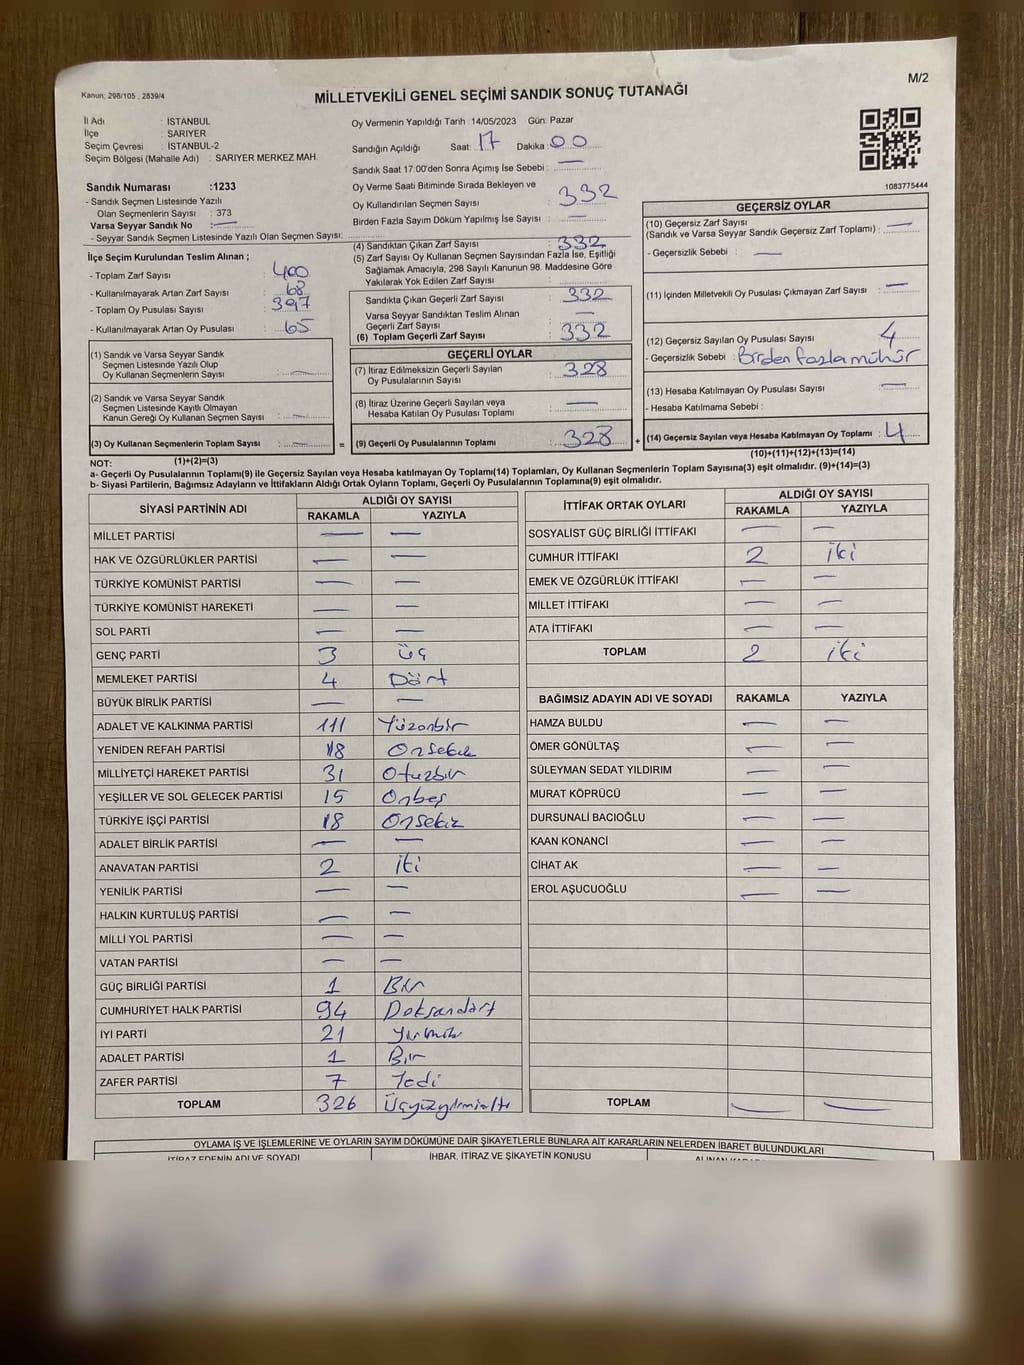 M/2
Kanun: 298/105 , 2839/4
MİLLETVEKİLİ GENEL SEÇİMİ SANDIK SONUÇ TUTANAĞI
İl Adı : İSTANBUL
İlçe : SARIYER
Seçim Çevresi : İSTANBUL-2
Seçim Bölgesi (Mahalle Adı) : SARIYER MERKEZ MAH.
Sandık Numarası :1233
- Sandık Seçmen Listesinde Yazılı
Olan Seçmenlerin Sayısı : 373
Varsa Seyyar Sandık No : —
- Seyyar Sandık Seçmen Listesinde Yazılı Olan Seçmen Sayısı:
Oy Vermenin Yapıldığı Tarih :14/05/2023 Gün: Pazar
Sandığın Açıldığı Saat: 17 Dakika: 00
Sandık Saat 17:00'den Sonra Açımış İse Sebebi : —
Oy Verme Saati Bitiminde Sırada Bekleyen ve
Oy Kullandırılan Seçmen Sayısı : 332
Birden Fazla Sayım Döküm Yapılmış İse Sayısı : —
1083775444
İlçe Seçim Kurulundan Teslim Alınan ;
- Toplam Zarf Sayısı : 400
- Kullanılmayarak Artan Zarf Sayısı : 68
- Toplam Oy Pusulası Sayısı : 397
- Kullanılmayarak Artan Oy Pusulası : 65
(1) Sandık ve Varsa Seyyar Sandık
Seçmen Listesinde Yazılı Olup
Oy Kullanan Seçmenlerin Sayısı : —
(2) Sandık ve Varsa Seyyar Sandık
Seçmen Listesinde Kayıtlı Olmayan
Kanun Gereği Oy Kullanan Seçmen Sayısı : —
(3) Oy Kullanan Seçmenlerin Toplam Sayısı : —
(1)+(2)=(3)
(4) Sandıktan Çıkan Zarf Sayısı : 332
(5) Zarf Sayısı Oy Kullanan Seçmen Sayısından Fazla İse, Eşitliği
Sağlamak Amacıyla, 298 Sayılı Kanunun 98. Maddesine Göre
Yakılarak Yok Edilen Zarf Sayısı :
Sandıkta Çıkan Geçerli Zarf Sayısı : 332
Varsa Seyyar Sandıktan Teslim Alınan
Geçerli Zarf Sayısı : —
(6) Toplam Geçerli Zarf Sayısı : 332
GEÇERLİ OYLAR
(7) İtiraz Edilmeksizin Geçerli Sayılan
Oy Pusulalarının Sayısı : 328
(8) İtiraz Üzerine Geçerli Sayılan veya
Hesaba Katılan Oy Pusulası Toplamı : —
= (9) Geçerli Oy Pusulalarının Toplamı : 328
GEÇERSİZ OYLAR
(10) Geçersiz Zarf Sayısı
(Sandık ve Varsa Seyyar Sandık Geçersiz Zarf Toplamı) : —
- Geçersizlik Sebebi : —
(11) İçinden Milletvekili Oy Pusulası Çıkmayan Zarf Sayısı : —
(12) Geçersiz Sayılan Oy Pusulası Sayısı : 4
- Geçersizlik Sebebi : Birden fazla mühür
(13) Hesaba Katılmayan Oy Pusulası Sayısı : —
- Hesaba Katılmama Sebebi :
+ (14) Geçersiz Sayılan veya Hesaba Katılmayan Oy Toplamı : 4
(10)+(11)+(12)+(13)=(14)
NOT:
a- Geçerli Oy Pusulalarının Toplamı(9) ile Geçersiz Sayılan veya Hesaba katılmayan Oy Toplamı(14) Toplamları, Oy Kullanan Seçmenlerin Toplam Sayısına(3) eşit olmalıdır. (9)+(14)=(3)
b- Siyasi Partilerin, Bağımsız Adayların ve İttifakların Aldığı Ortak Oyların Toplamı, Geçerli Oy Pusulalarının Toplamına(9) eşit olmalıdır.
SİYASİ PARTİNİN ADI ALDIĞI OY SAYISI
RAKAMLA YAZIYLA
MİLLET PARTİSİ — —
HAK VE ÖZGÜRLÜKLER PARTİSİ — —
TÜRKİYE KOMÜNİST PARTİSİ — —
TÜRKİYE KOMÜNİST HAREKETİ — —
SOL PARTİ — —
GENÇ PARTİ 3 Üç
MEMLEKET PARTİSİ 4 Dört
BÜYÜK BİRLİK PARTİSİ — —
ADALET VE KALKINMA PARTİSİ 111 Yüzonbir
YENİDEN REFAH PARTİSİ 18 Onsekiz
MİLLİYETÇİ HAREKET PARTİSİ 31 Otuzbir
YEŞİLLER VE SOL GELECEK PARTİSİ 15 Onbeş
TÜRKİYE İŞÇİ PARTİSİ 18 Onsekiz
ADALET BİRLİK PARTİSİ — —
ANAVATAN PARTİSİ 2 iki
YENİLİK PARTİSİ — —
HALKIN KURTULUŞ PARTİSİ — —
MİLLİ YOL PARTİSİ — —
VATAN PARTİSİ — —
GÜÇ BİRLİĞİ PARTİSİ 1 Bir
CUMHURİYET HALK PARTİSİ 94 Doksandört
İYİ PARTİ 21 Yirmibir
ADALET PARTİSİ 1 Bir
ZAFER PARTİSİ 7 Yedi
TOPLAM 326 Üçyüzyirmialtı
İTTİFAK ORTAK OYLARI ALDIĞI OY SAYISI
RAKAMLA YAZIYLA
SOSYALİST GÜÇ BİRLİĞİ İTTİFAKI — —
CUMHUR İTTİFAKI 2 iki
EMEK VE ÖZGÜRLÜK İTTİFAKI — —
MİLLET İTTİFAKI — —
ATA İTTİFAKI — —
TOPLAM 2 iki
BAĞIMSIZ ADAYIN ADI VE SOYADI RAKAMLA YAZIYLA
HAMZA BULDU — —
ÖMER GÖNÜLTAŞ — —
SÜLEYMAN SEDAT YILDIRIM — —
MURAT KÖPRÜCÜ — —
DURSUNALİ BACIOĞLU — —
KAAN KONANCİ — —
CİHAT AK — —
EROL AŞUCUOĞLU — —
TOPLAM — —
OYLAMA İŞ VE İŞLEMLERİNE VE OYLARIN SAYIM DÖKÜMÜNE DAİR ŞİKAYETLERLE BUNLARA AİT KARARLARIN NELERDEN İBARET BULUNDUKLARI
İTİRAZ EDENİN ADI VE SOYADI İHBAR, İTİRAZ VE ŞİKAYETİN KONUSU